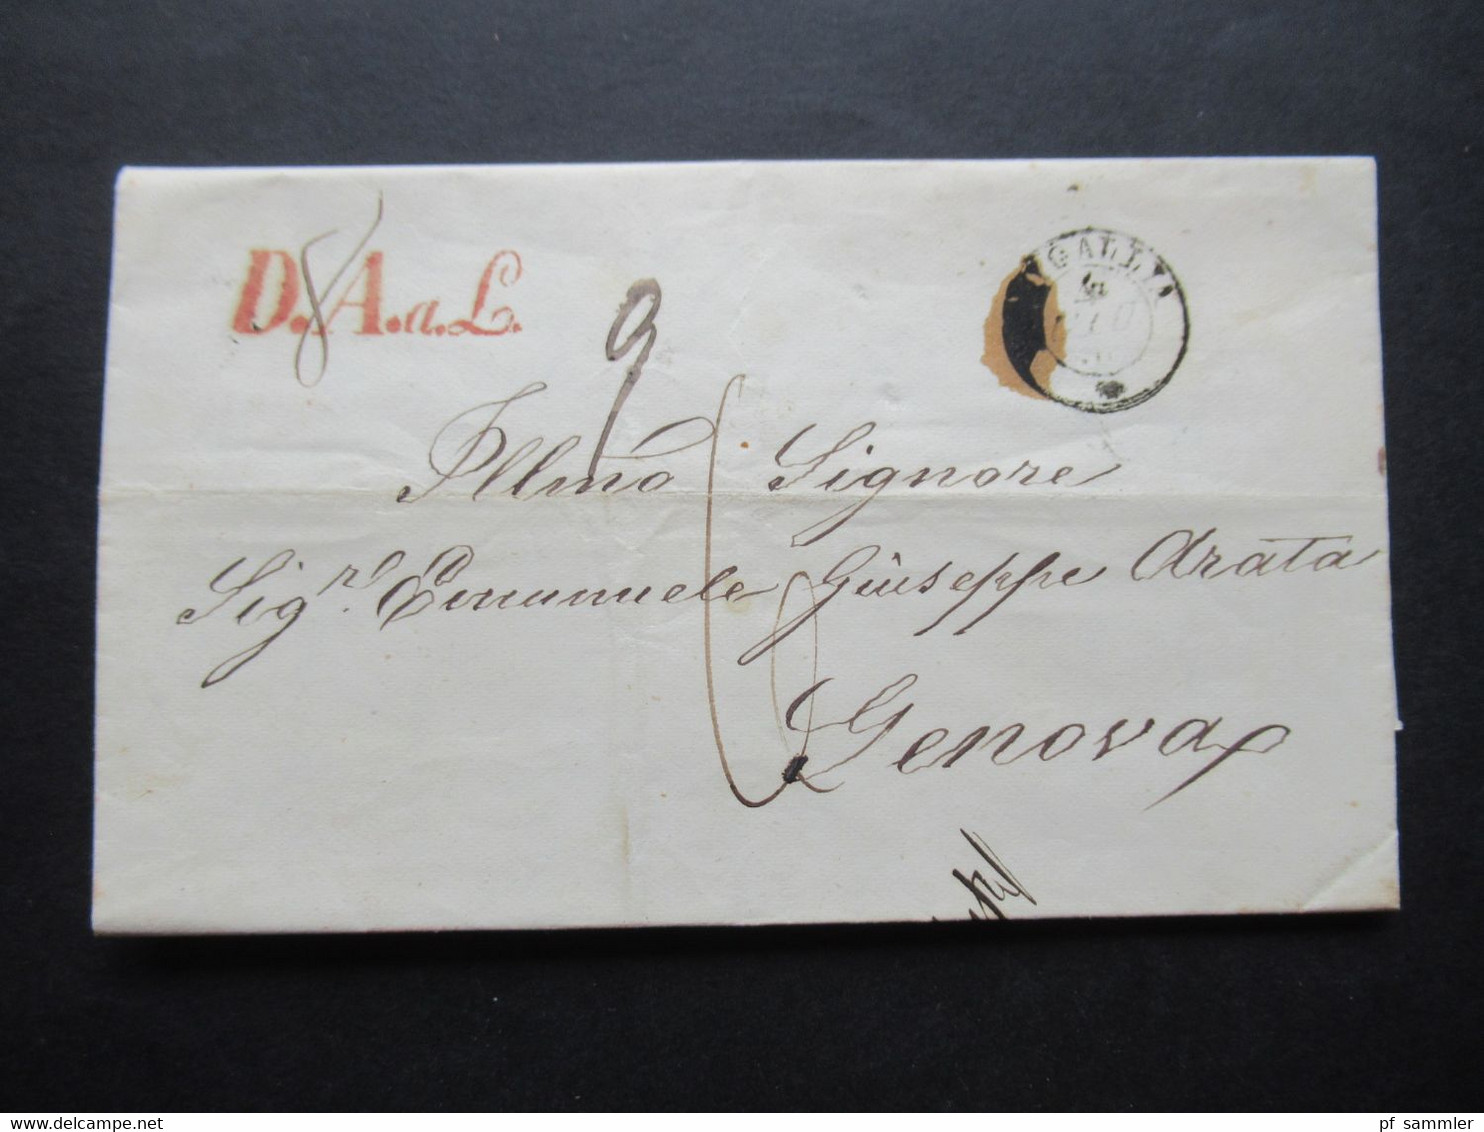 D.A.a.L.
8
9
Illmo Signore
Sigr. Emanuele Giuseppe Arata
Genova
delcampe.net
pf_sammler